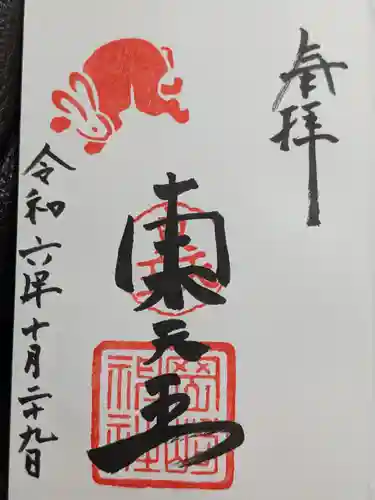 奉拝
東天王
岡崎
神社
令和六年十月二十九日